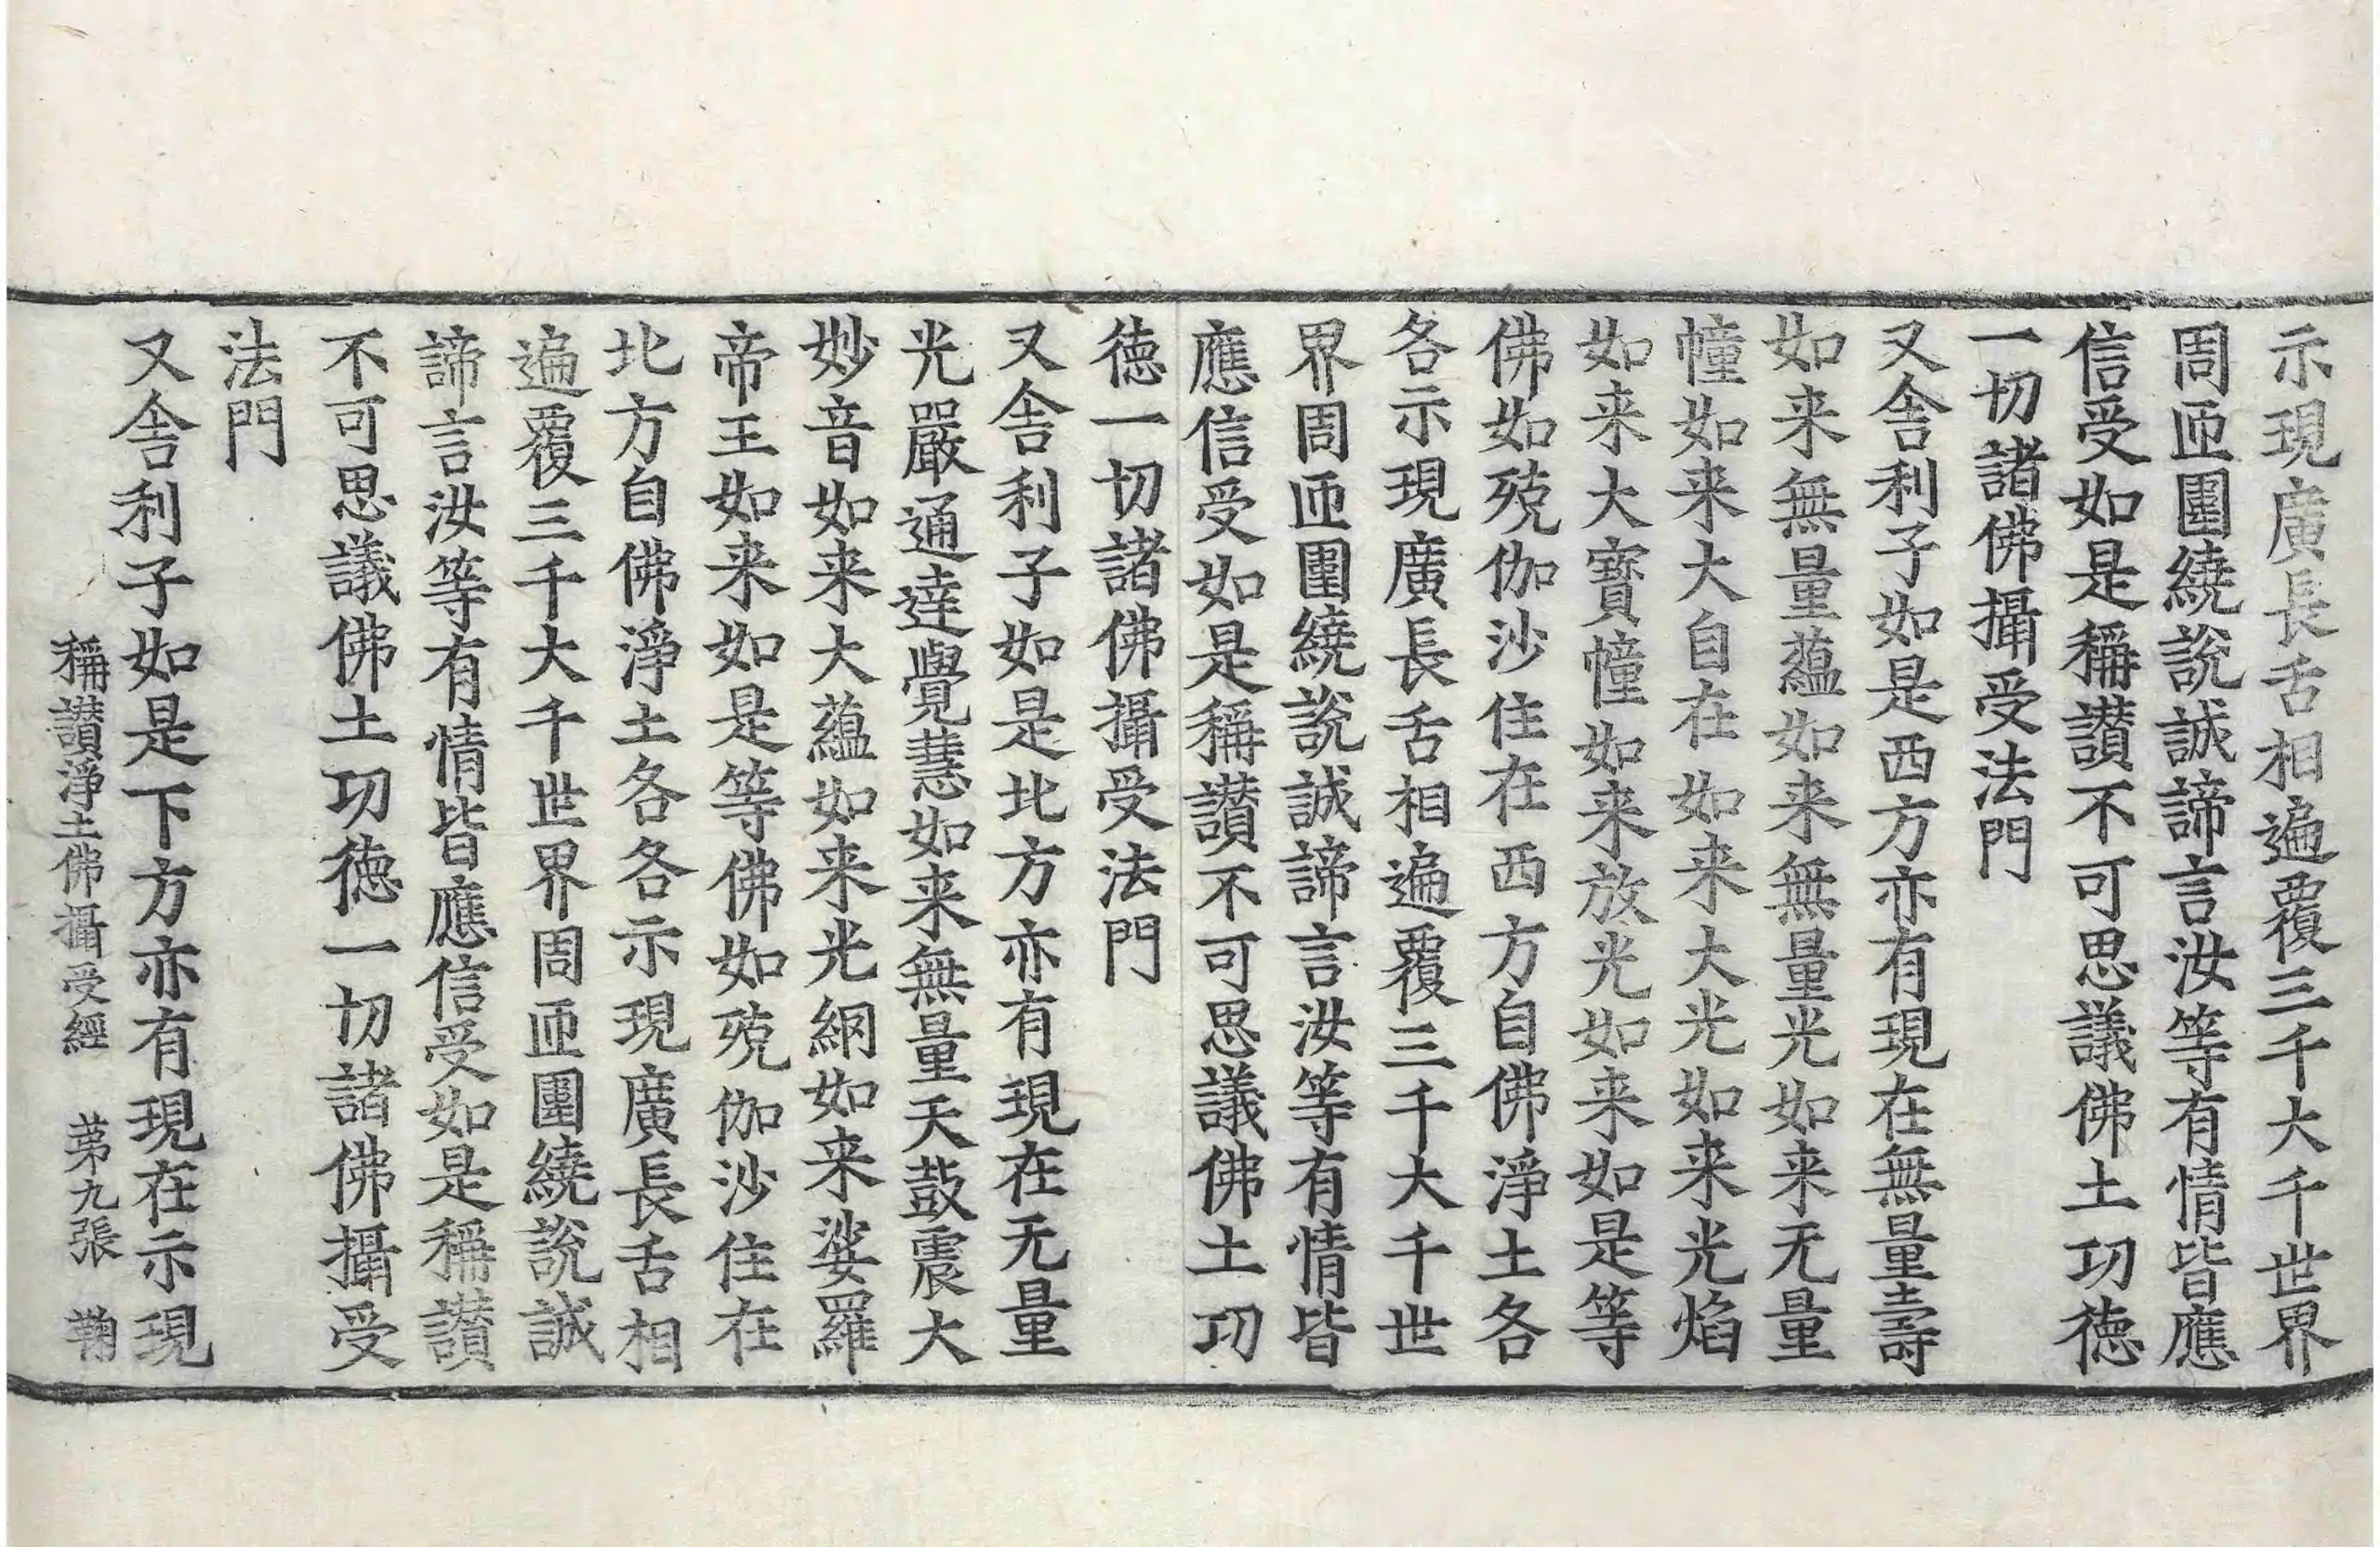 示現廣長舌相遍覆三千大千世界
周匝圍繞說誠諦言汝等有情皆應
信受如是稱讃不可思議佛土功徳
一切諸佛攝受法門
又舍利子如是西方亦有現在無量壽
如来無量蘊如来無量光如来无量
幢如来大自在如来大光如来光焰
如来大寳幢如来放光如来如是等
佛如殑伽沙住在西方自佛淨土各
各示現廣長舌相遍覆三千大千世
界周匝圍繞說誠諦言汝等有情皆
應信受如是稱讃不可思議佛土功
徳一切諸佛攝受法門
又舍利子如是北方亦有現在无量
光嚴通達覺慧如来無量天鼓震大
妙音如来大蘊如来光網如来娑羅
帝王如来如是等佛如殑伽沙住在
北方自佛淨土各各示現廣長舌相
遍覆三千大千世界周匝圍繞說誠
諦言汝等有情皆應信受如是稱讃
不可思議佛土功徳一切諸佛攝受
法門
又舍利子如是下方亦有現在示現
稱讃淨土佛攝受經 苐九張 鞠